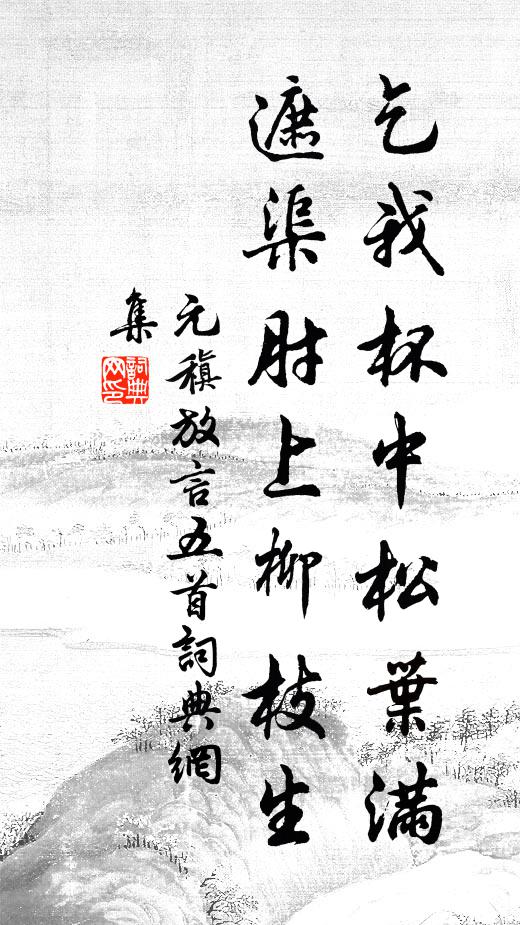 乞我杯中松葉滿
遮渠肘上柳枝生
元稹放言五首詞典網
集
詞典網印